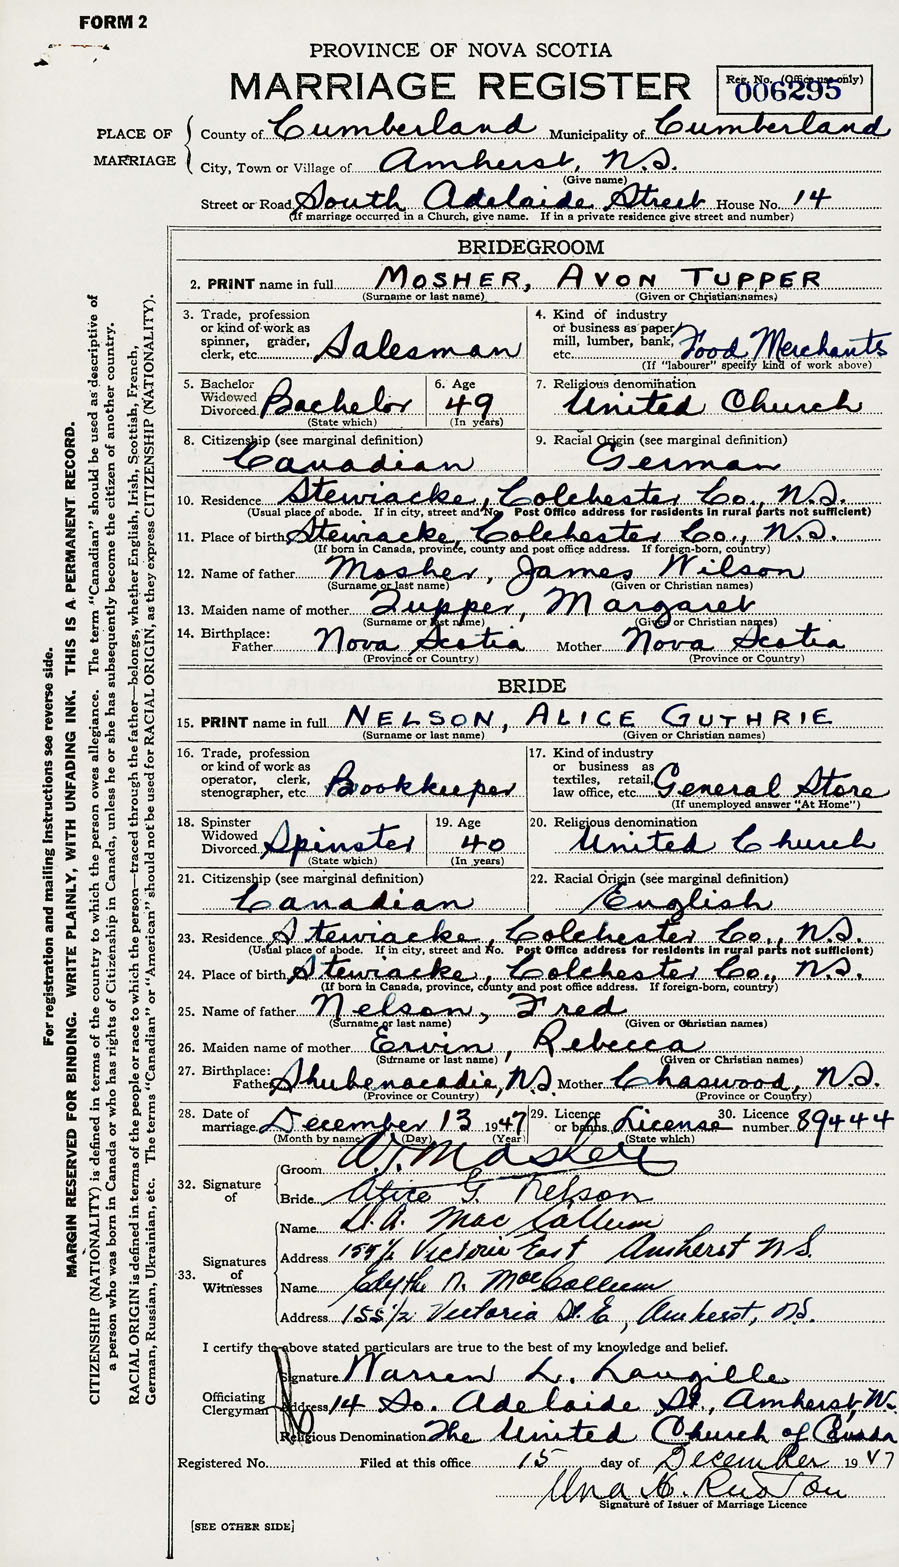 FORM 2
PROVINCE OF NOVA SCOTIA
MARRIAGE REGISTER
Reg. No. (Office use only)
006295
PLACE OF MARRIAGE
County of Cumberland Municipality of Cumberland
City, Town or Village of Amherst, N.S.
(Give name)
Street or Road South Adelaide Street House No. 14
(If marriage occurred in a Church, give name. If in a private residence give street and number)
BRIDEGROOM
2. PRINT name in full MOSHER, AVON TUPPER
(Surname or last name) (Given or Christian names)
3. Trade, profession or kind of work as spinner, grader, clerk, etc. Salesman
4. Kind of industry or business as paper mill, lumber, bank, etc. Food Merchants
(If "labourer" specify kind of work above)
5. Bachelor Widowed Divorced Bachelor
(State which)
6. Age 49
(In years)
7. Religious denomination United Church
8. Citizenship (see marginal definition) Canadian
9. Racial Origin (see marginal definition) German
10. Residence Stewiacke, Colchester Co., N.S.
(Usual place of abode. If in city, street and No. Post Office address for residents in rural parts not sufficient)
11. Place of birth Stewiacke, Colchester Co., N.S.
(If born in Canada, province, county and post office address. If foreign-born, country)
12. Name of father Mosher, James Wilson
(Surname or last name) (Given or Christian names)
13. Maiden name of mother Tupper, Margaret
(Surname or last name) (Given or Christian names)
14. Birthplace: Father Nova Scotia Mother Nova Scotia
(Province or Country) (Province or Country)
BRIDE
15. PRINT name in full NELSON, ALICE GUTHRIE
(Surname or last name) (Given or Christian names)
16. Trade, profession or kind of work as operator, clerk, stenographer, etc. Bookkeeper
17. Kind of industry or business as textiles, retail, law office, etc. General Store
(If unemployed answer "At Home")
18. Spinster Widowed Divorced Spinster
(State which)
19. Age 40
(In years)
20. Religious denomination United Church
21. Citizenship (see marginal definition) Canadian
22. Racial Origin (see marginal definition) English
23. Residence Stewiacke, Colchester Co., N.S.
(Usual place of abode. If in city, street and No. Post Office address for residents in rural parts not sufficient)
24. Place of birth Stewiacke, Colchester Co., N.S.
(If born in Canada, province, county and post office address. If foreign-born, country)
25. Name of father Nelson, Fred
(Surname or last name) (Given or Christian names)
26. Maiden name of mother Ervin, Rebecca
(Surname or last name) (Given or Christian names)
27. Birthplace: Father Shubenacadie, N.S. Mother Chaswood, N.S.
(Province or Country) (Province or Country)
28. Date of marriage December 13 1947
(Month by name) (Day) (Year)
29. Licence or banns License
(State which)
30. Licence number 89444
32. Signature of
Groom A.T. Mosher
Bride Alice G. Nelson
33. Signatures of Witnesses
Name D. A. MacCallum
Address 155½ Victoria East Amherst N.S.
Name Edythe N. MacCallum
Address 155½ Victoria St. E, Amherst, N.S.
I certify the above stated particulars are true to the best of my knowledge and belief.
Officiating Clergyman
Signature Warren L. Langille
Address 14 So. Adelaide St., Amherst, N.S.
Religious Denomination The United Church of Canada
Registered No. Filed at this office 15 day of December 1947
Una K. Ruston
Signature of Issuer of Marriage Licence
[SEE OTHER SIDE]
For registration and mailing instructions see reverse side.
MARGIN RESERVED FOR BINDING. WRITE PLAINLY, WITH UNFADING INK. THIS IS A PERMANENT RECORD.
CITIZENSHIP (NATIONALITY) is defined in terms of the country to which the person owes allegiance. The term "Canadian" should be used as descriptive of
a person who was born in Canada or who has rights of Citizenship in Canada, unless he or she has subsequently become the citizen of another country.
RACIAL ORIGIN is defined in terms of the people or race to which the person—traced through the father—belongs, whether English, Irish, Scottish, French,
German, Russian, Ukrainian, etc. The terms "Canadian" or "American" should not be used for RACIAL ORIGIN, as they express CITIZENSHIP (NATIONALITY).